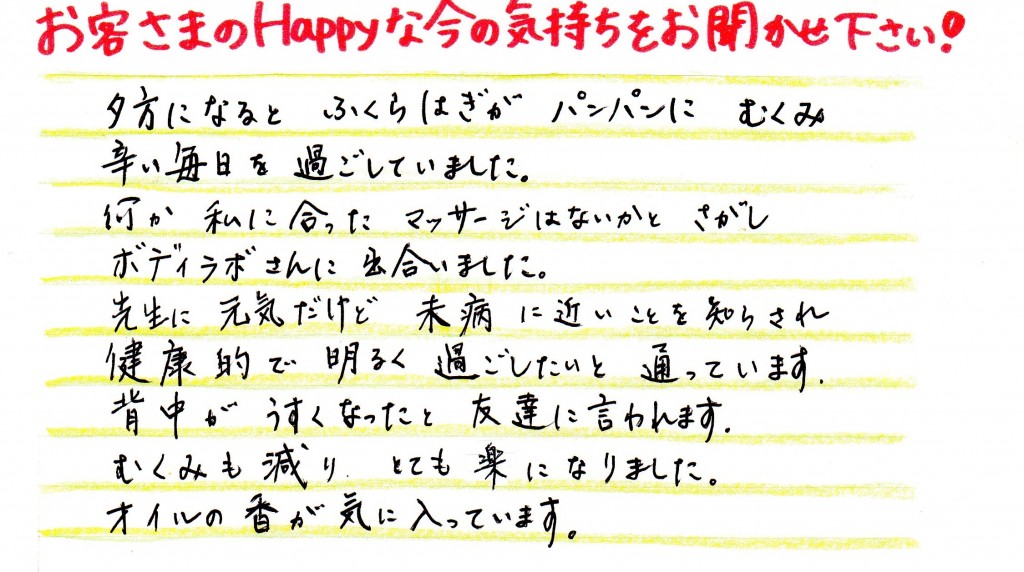 お客さまのHappyな今の気持ちをお聞かせ下さい!
夕方になると ふくらはぎが パンパンに むくみ
辛い毎日を 過ごしていました。
何か 私に合った マッサージはないかと さがし
ボディラボさんに 出合いました。
先生に 元気だけど 未病 に近いことを知らされ
健康的で 明るく 過ごしたいと 通っています.
背中が うすくなったと 友達に言われます.
むくみも 減り とても 楽になりました。
オイルの 香が 気に 入っています。